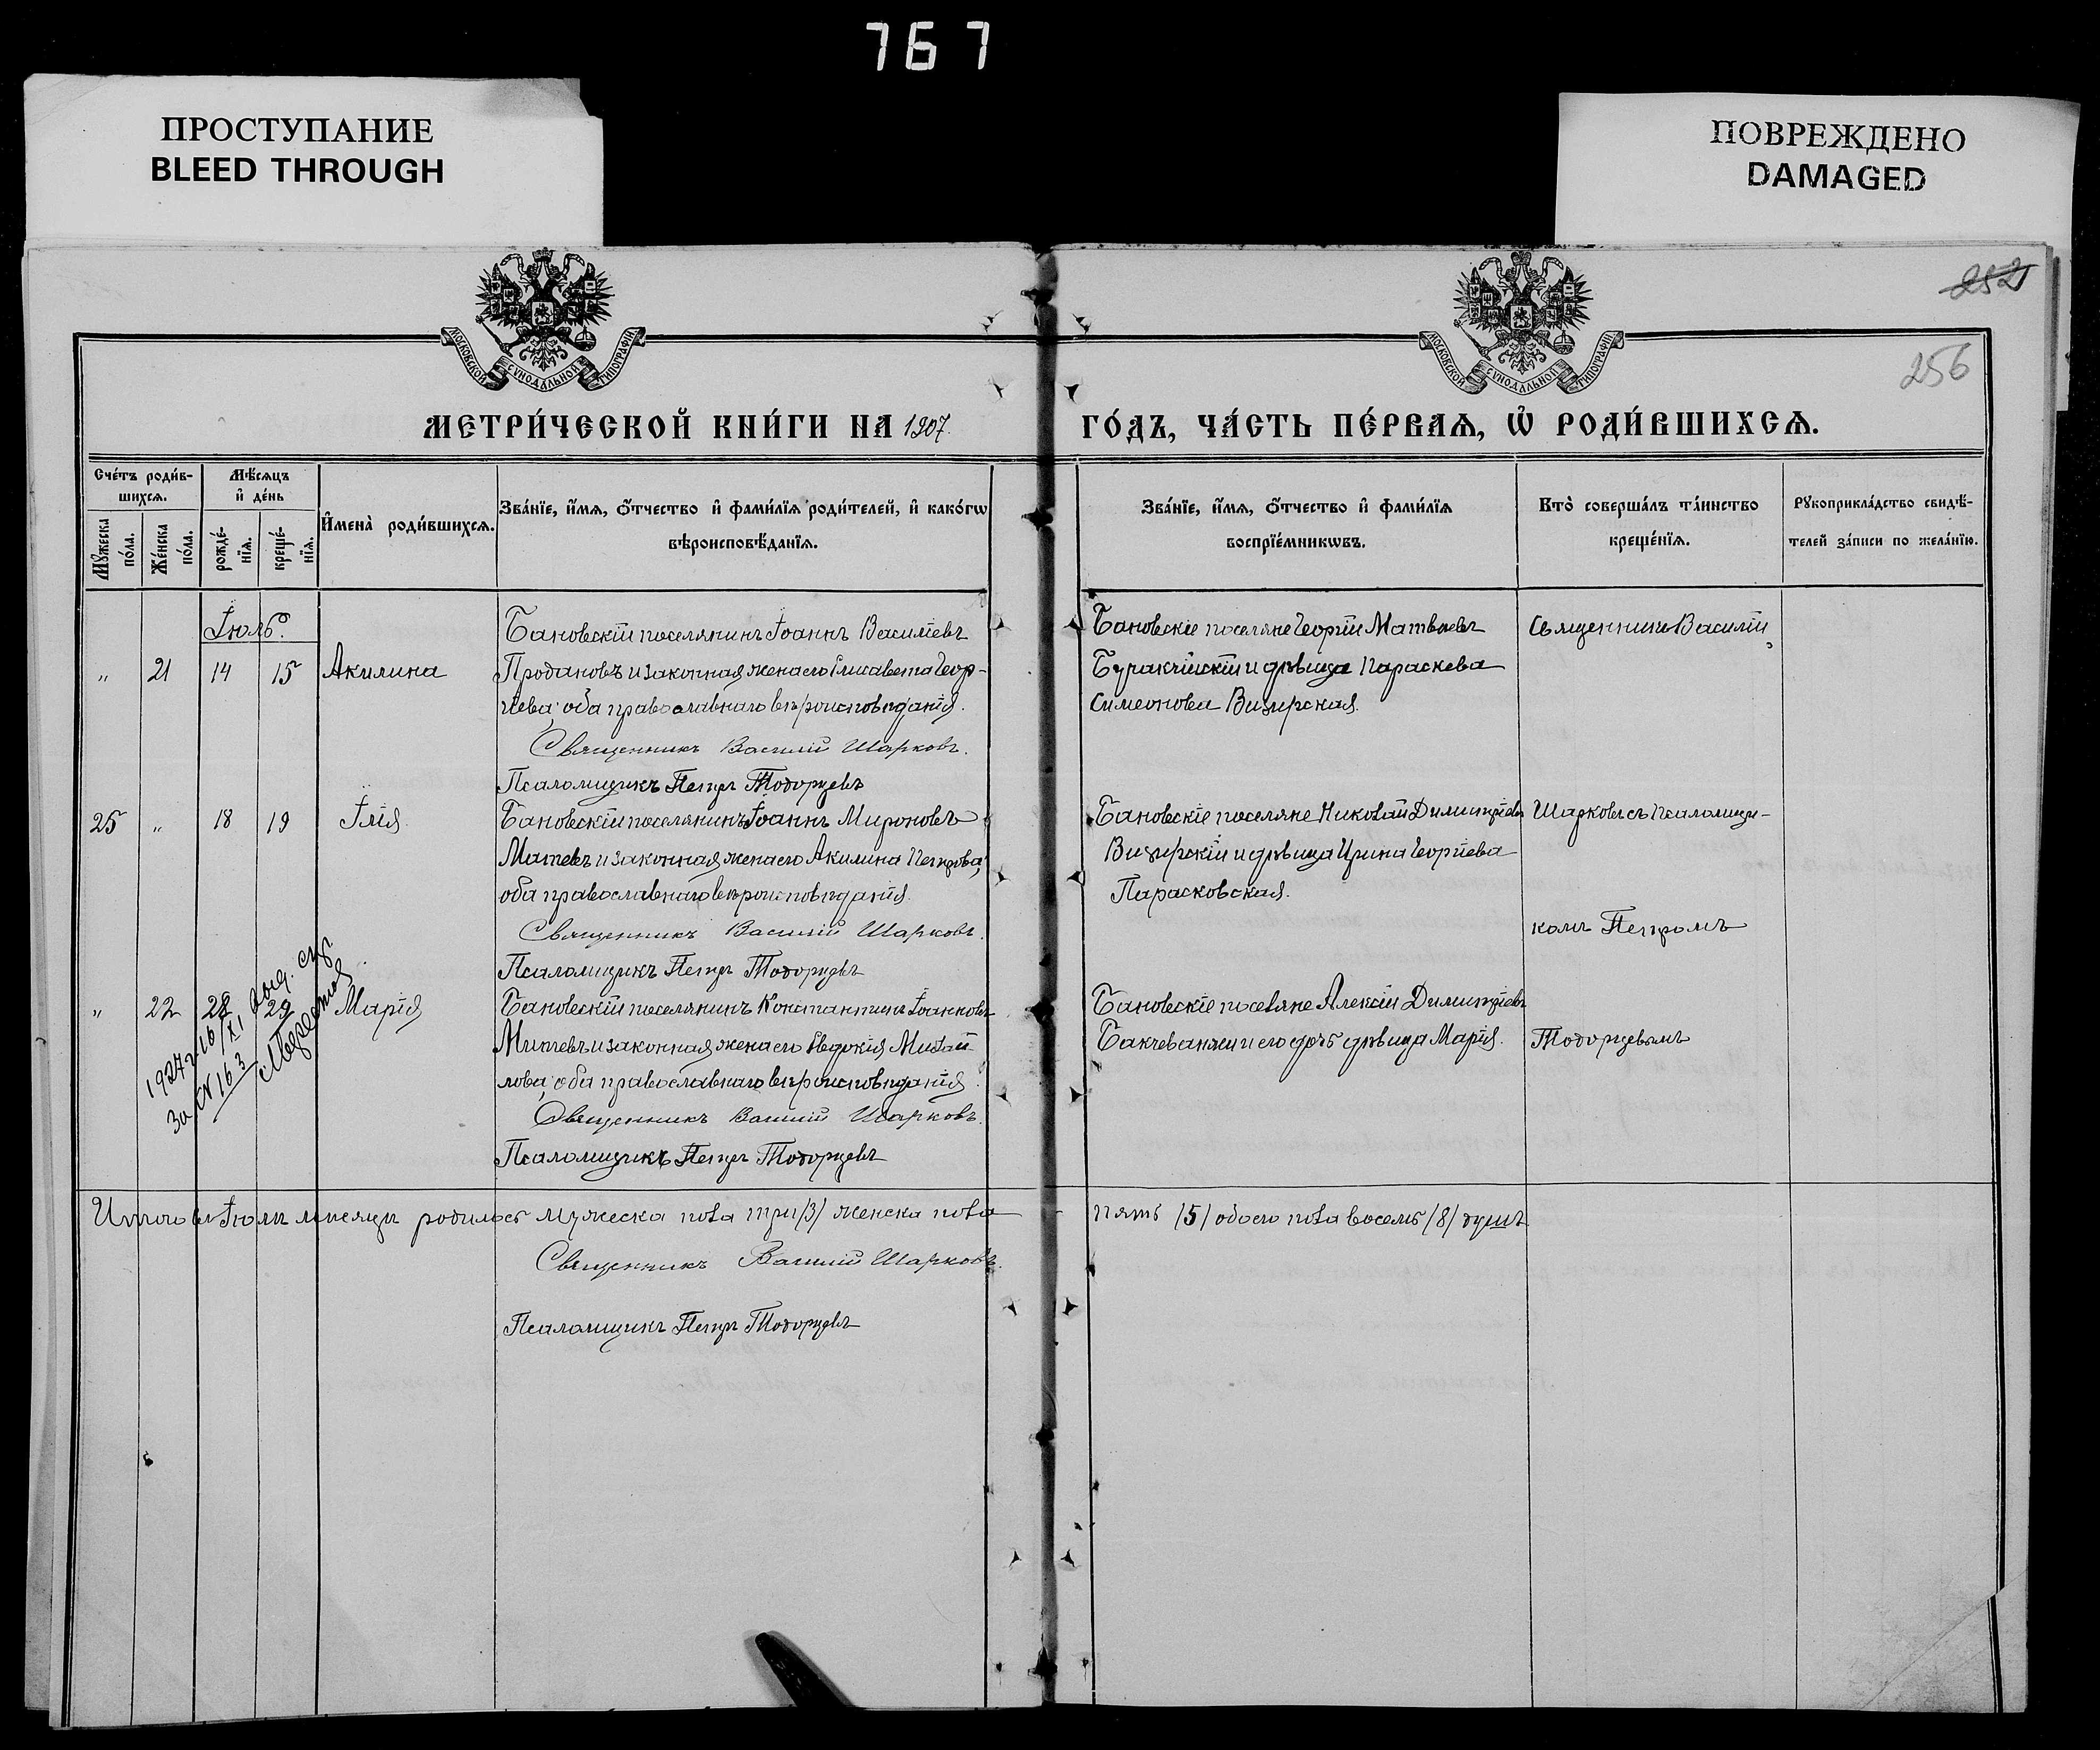 767
ПРОСТУПАНИЕ
BLEED THROUGH
ПОВРЕЖДЕНО
DAMAGED
252
256
МОСКОВСКОЙ СѴНОДАЛЬНОЙ ТИПОГРАФІИ
МОСКОВСКОЙ СѴНОДАЛЬНОЙ ТИПОГРАФІИ
МЕТРИ́ЧЕСКОЙ КНИ́ГИ НА 1907.
ГО́ДЪ, ЧА́СТЬ ПЕ́РВАѦ, Ѡ҆ РОДИ́ВШИХСѦ.
Сче́тъ роди́в-
шихсѧ.
Мѣ́сѧцъ
и҆ де́нь
Мꙋ́жеска по́ла.
Же́нска по́ла.
рожде́-нїѧ.
креще́-нїѧ.
И҆мена̀ роди́вшихсѧ.
Зва́нїе, и҆́мѧ, о҆́тчество и҆ фами́лїѧ роди́телей, и҆ како́гѡ
вѣроисповѣ́данїѧ.
Зва́нїе, и҆́мѧ, о҆́тчество и҆ фами́лїѧ
воспрїе́мникѡвъ.
Кто̀ соверша́лъ та́инство
креще́нїѧ.
Рꙋкоприкла́дство свидѣ́-
телей за́писи по жела́нїю.
Іюль.
" 21 14 15 Акилина
Бановскій поселянинъ Іоаннъ Василіевъ
Продановъ и законная жена его Елисавета Геор-
гіева; оба православнаго вѣроисповѣданія.
Священникъ Василій Шарковъ.
Псаломщикъ Петръ Тодорцевъ
Бановскіе поселяне Георгій Матвѣевъ
Буракчійскій и дѣвица Параскева
Симеонова Визирская.
Священникъ Василій
25 " 18 19 Ілія.
Бановскій поселянинъ Іоаннъ Мироновъ
Матевъ и законная жена его Акилина Петрова;
оба православнаго вѣроисповѣданія.
Священникъ Василій Шарковъ.
Псаломщикъ Петръ Тодорцевъ
Бановскіе поселяне Николай Димитріевъ
Визирскій и дѣвица Ирина Георгіева
Парасковская.
Шарковъ съ Псаломщи-
комъ Петромъ
" 22 28 29 Марія
1927 г. 16/XI
за № 163
Бановскій поселянинъ Константинъ Іоанновъ
Митевъ и законная жена его Евдокія Михай-
лова; оба православнаго вѣроисповѣданія.
Священникъ Василій Шарковъ.
Псаломщикъ Петръ Тодорцевъ
Бановскіе поселяне Алексій Димитріевъ
Бакчеванжи и его дочь дѣвица Марія.
Тодорцевымъ
Итого въ Іюлѣ мѣсяцѣ родилось мужеска пола три /3/ женска пола
пять /5/ обоего пола восемь /8/ душъ
Священникъ Василій Шарковъ.
Псаломщикъ Петръ Тодорцевъ